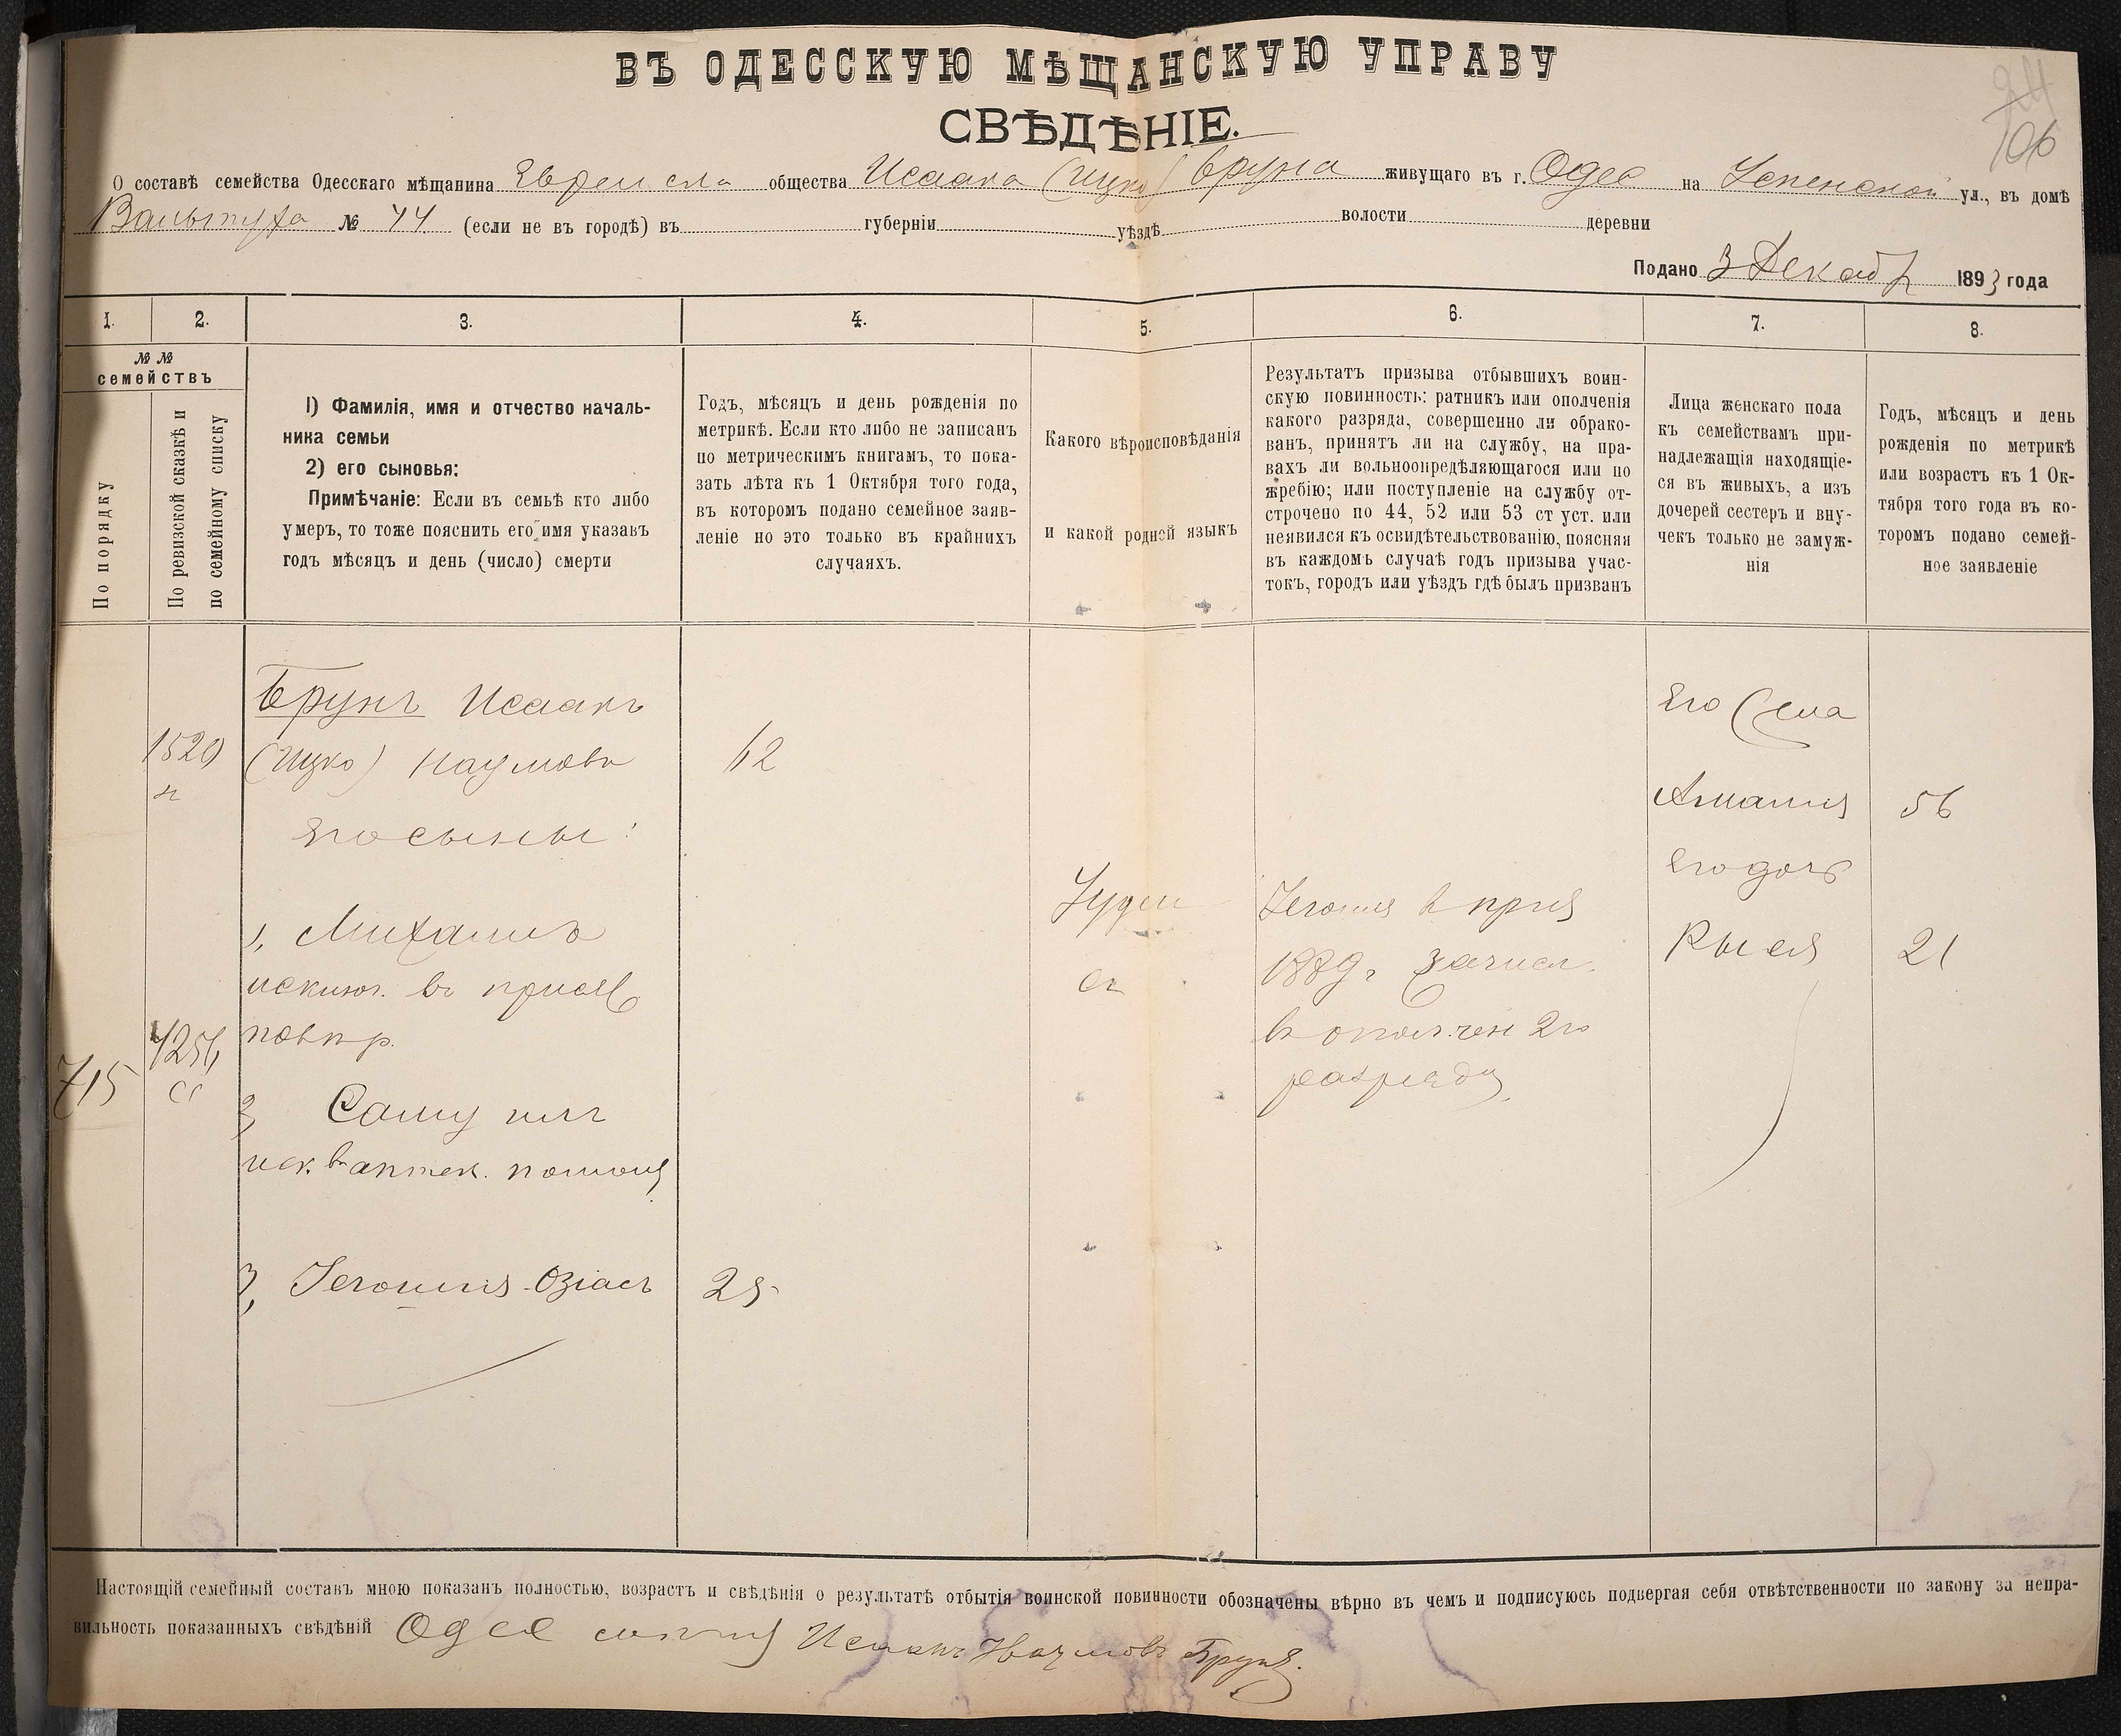 ВЪ ОДЕССКУЮ МѢЩАНСКУЮ УПРАВУ
СВѢДѢНІЕ.
106
О составѣ семейства Одесскаго мѣщанина Еврейска общества Исаака (Ицко) Бруна живущаго въ г. Одес на Успенской ул., въ домѣ
Вальтуха № 44 (если не въ городѣ) въ губерніи уѣздѣ волости деревни
Подано 3 Декаб 1893 года
1. 2. 3. 4. 5. 6. 7. 8.
№ №
семействъ
По порядку
По ревизской сказкѣ и
по семейному списку
1) Фамилія, имя и отчество началь-
ника семьи
2) его сыновья:
Примѣчаніе: Если въ семьѣ кто либо
умеръ, то тоже пояснить его имя указавъ
годъ мѣсяцъ и день (число) смерти
Годъ, мѣсяцъ и день рожденія по
метрикѣ. Если кто либо не записанъ
по метрическимъ книгамъ, то пока-
зать лѣта къ 1 Октября того года,
въ которомъ подано семейное заяв-
леніе но это только въ крайнихъ
случаяхъ.
Какого вѣроисповѣданія
и какой родной языкъ
Результатъ призыва отбывшихъ воин-
скую повинность: ратникъ или ополченія
какого разряда, совершенно ли обрако-
ванъ, принятъ ли на службу, на пра-
вахъ ли вольноопредѣляющагося или по
жребію; или поступленіе на службу от-
строчено по 44, 52 или 53 ст уст. или
неявился къ освидѣтельствованію, поясняя
въ каждомъ случаѣ годъ призыва учас-
токъ, городъ или уѣздъ гдѣ былъ призванъ
Лица женскаго пола
къ семействамъ при-
надлежащія находящіе-
ся въ живыхъ, а изъ
дочерей сестеръ и вну-
чекъ только не замуж-
нія
Годъ, мѣсяцъ и день
рожденія по метрикѣ
или возрастъ къ 1 Ок-
тября того года въ ко-
торомъ подано семей-
ное заявленіе
715
1520
н
4254
Брунъ Исаакъ
(Ицко) Наумовъ
62
Его сыны:
1, Михаилъ
исключ. въ присяж
повпр.
2, Самуилъ
иск. въ аптек. помощ
3, Іегошия-Озіасъ
25
Іудей
ск
Іегошия в приз
1889 г зачисл.
въ ополчен 2го
разряда
Его Жена
Амалия
56
его дочь
Рыся
21
Настоящій семейный составъ мною показанъ полностью, возрастъ и свѣдѣнія о результатѣ отбытія воинской повинности обозначены вѣрно въ чемъ и подписуюсь подвергая себя отвѣтственности по закону за непра-
вильность показанныхъ свѣдѣній Одес Исаакъ Наумовъ Брунъ.